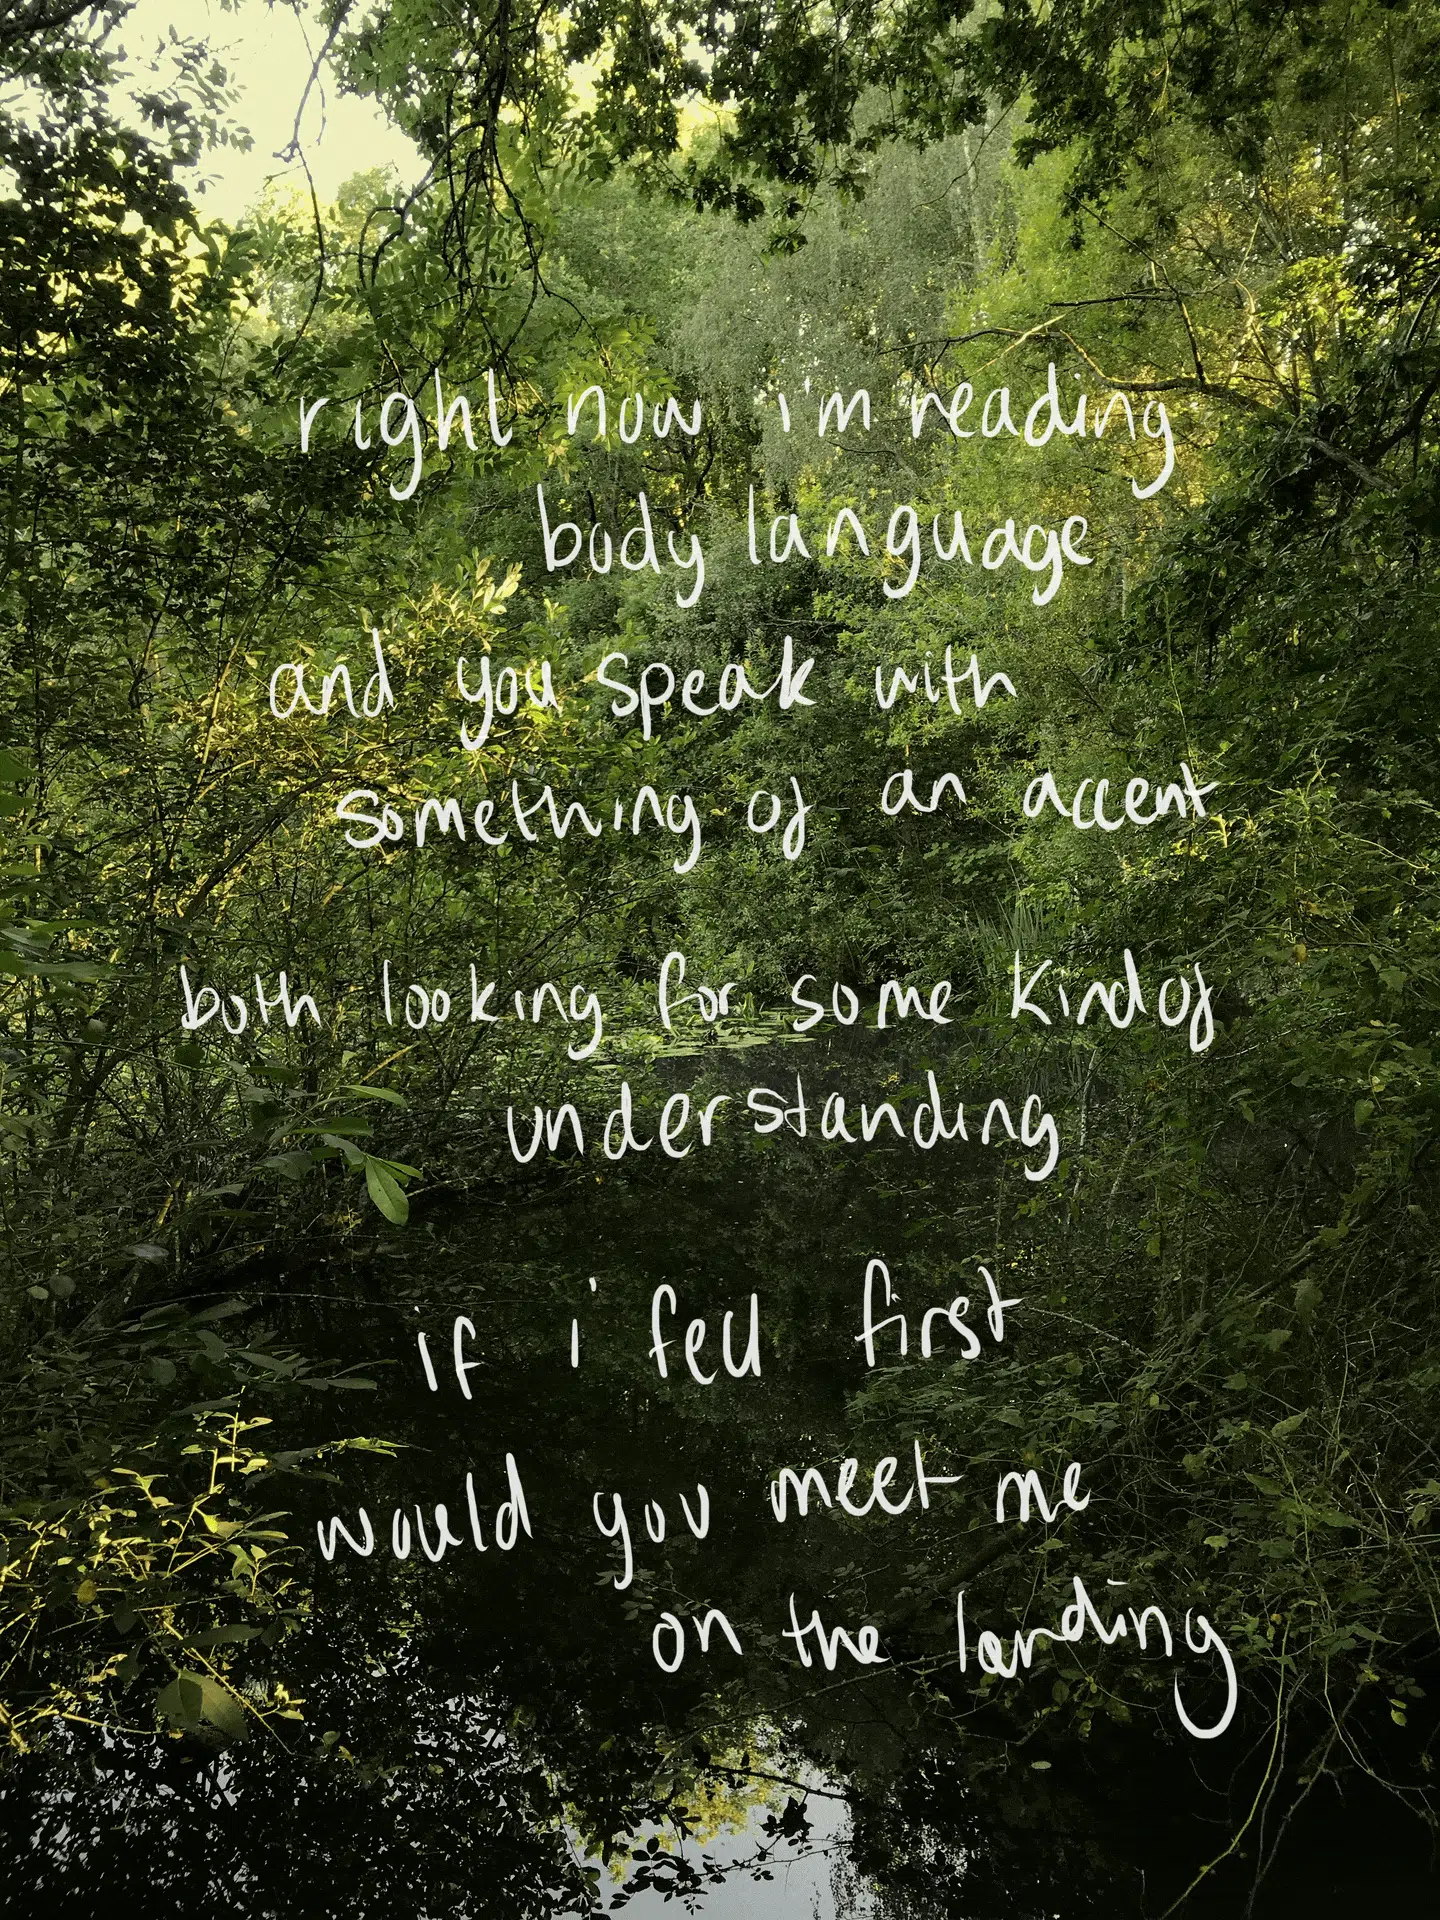 right now i'm reading
body language
and you speak with
something of an accent
both looking for some kind of
understanding
if i fell first
would you meet me
on the landing